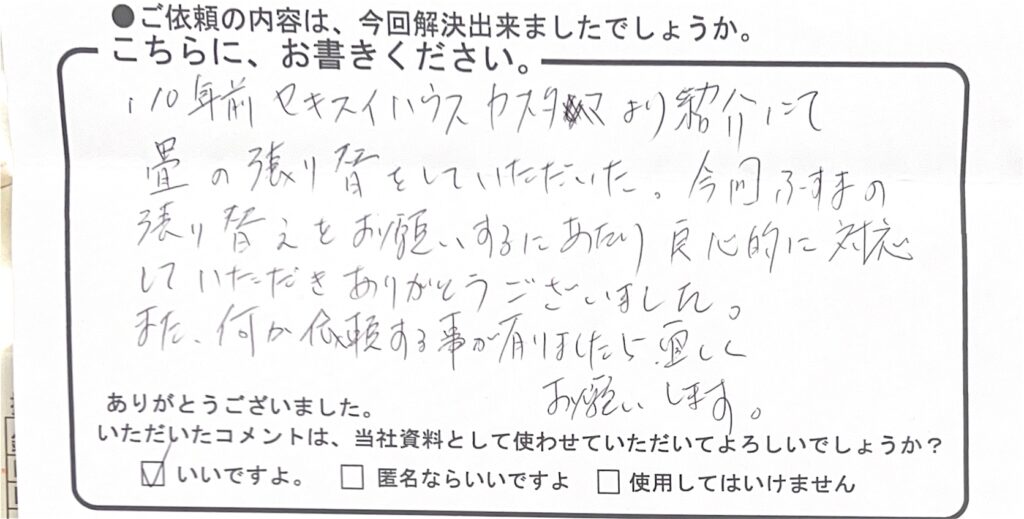 ●ご依頼の内容は、今回解決出来ましたでしょうか。
こちらに、お書きください。
、10年前 セキスイハウス カスタマ より紹介にて
畳の張り替をしていただいた。今回ふすまの
張り替えをお願いするにあたり良心的に対応
していただきありがとうございました。
また、何か依頼する事が有りましたら宜しく
お願いします。
ありがとうございました。
いただいたコメントは、当社資料として使わせていただいてよろしいでしょうか？
☑ いいですよ。 □ 匿名ならいいですよ □ 使用してはいけません